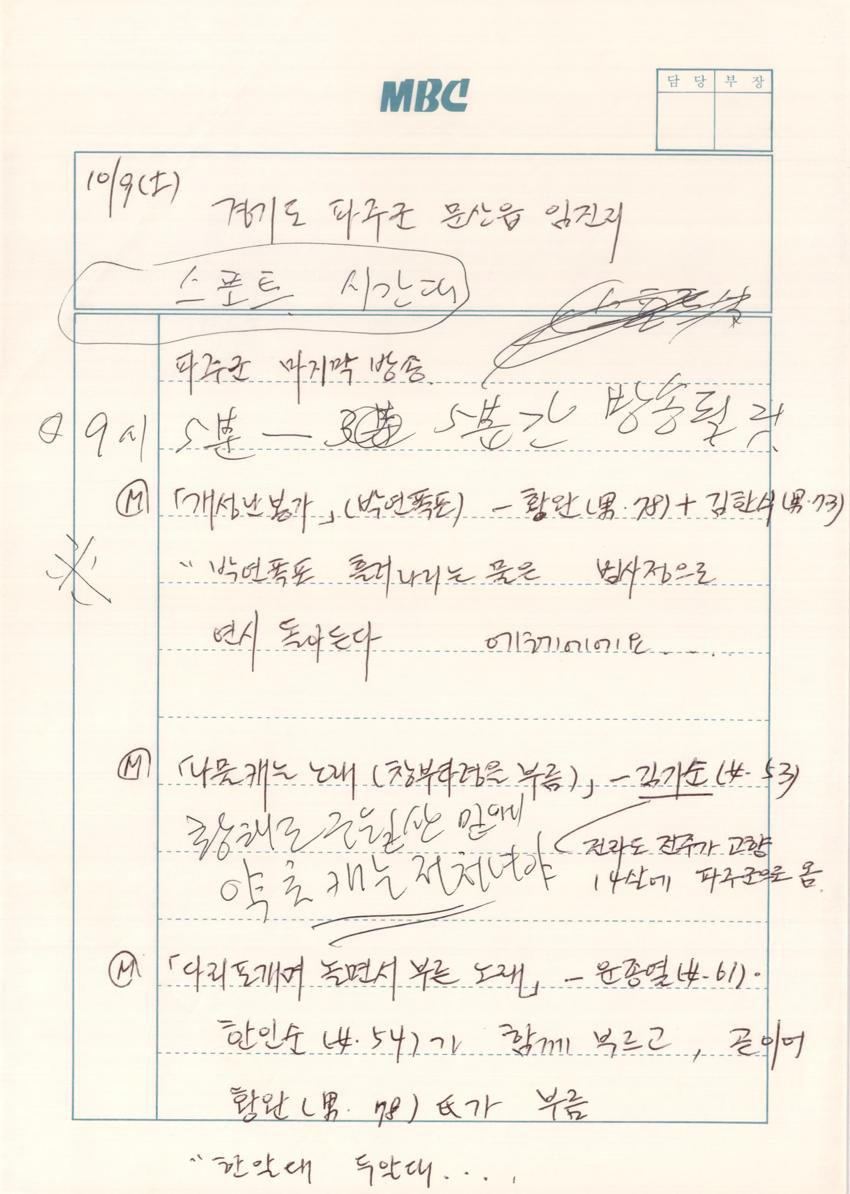 MBC
담당 부장
10/9(土)
경기도 파주군 문산읍 임진리
스포트 시간대
파주군 마지막 방송.
9시 5분 — 5분간 방송될 것
Ⓜ 「개성난봉가」 (박연폭포) - 황완(男·78) + 김한식(男·73)
※ "박연폭포 흘러나리는 물은 범사정으로
연시 돌아든다 에헤에에요.....
Ⓜ 「나물캐는 노래 (창부타령을 부름)」 - 김가순(女·53)
황해도 구월산 밑에
약초 캐는 저처녀야
전라도 전주가 고향
14살에 파주군으로 옴.
Ⓜ 「다리포개며 놀면서 부른 노래」 - 윤종열(女·61)·
한인순(女·54)가 함께 부르고, 곧이어
황완(男·78)氏가 부름
"한알대 두알대....